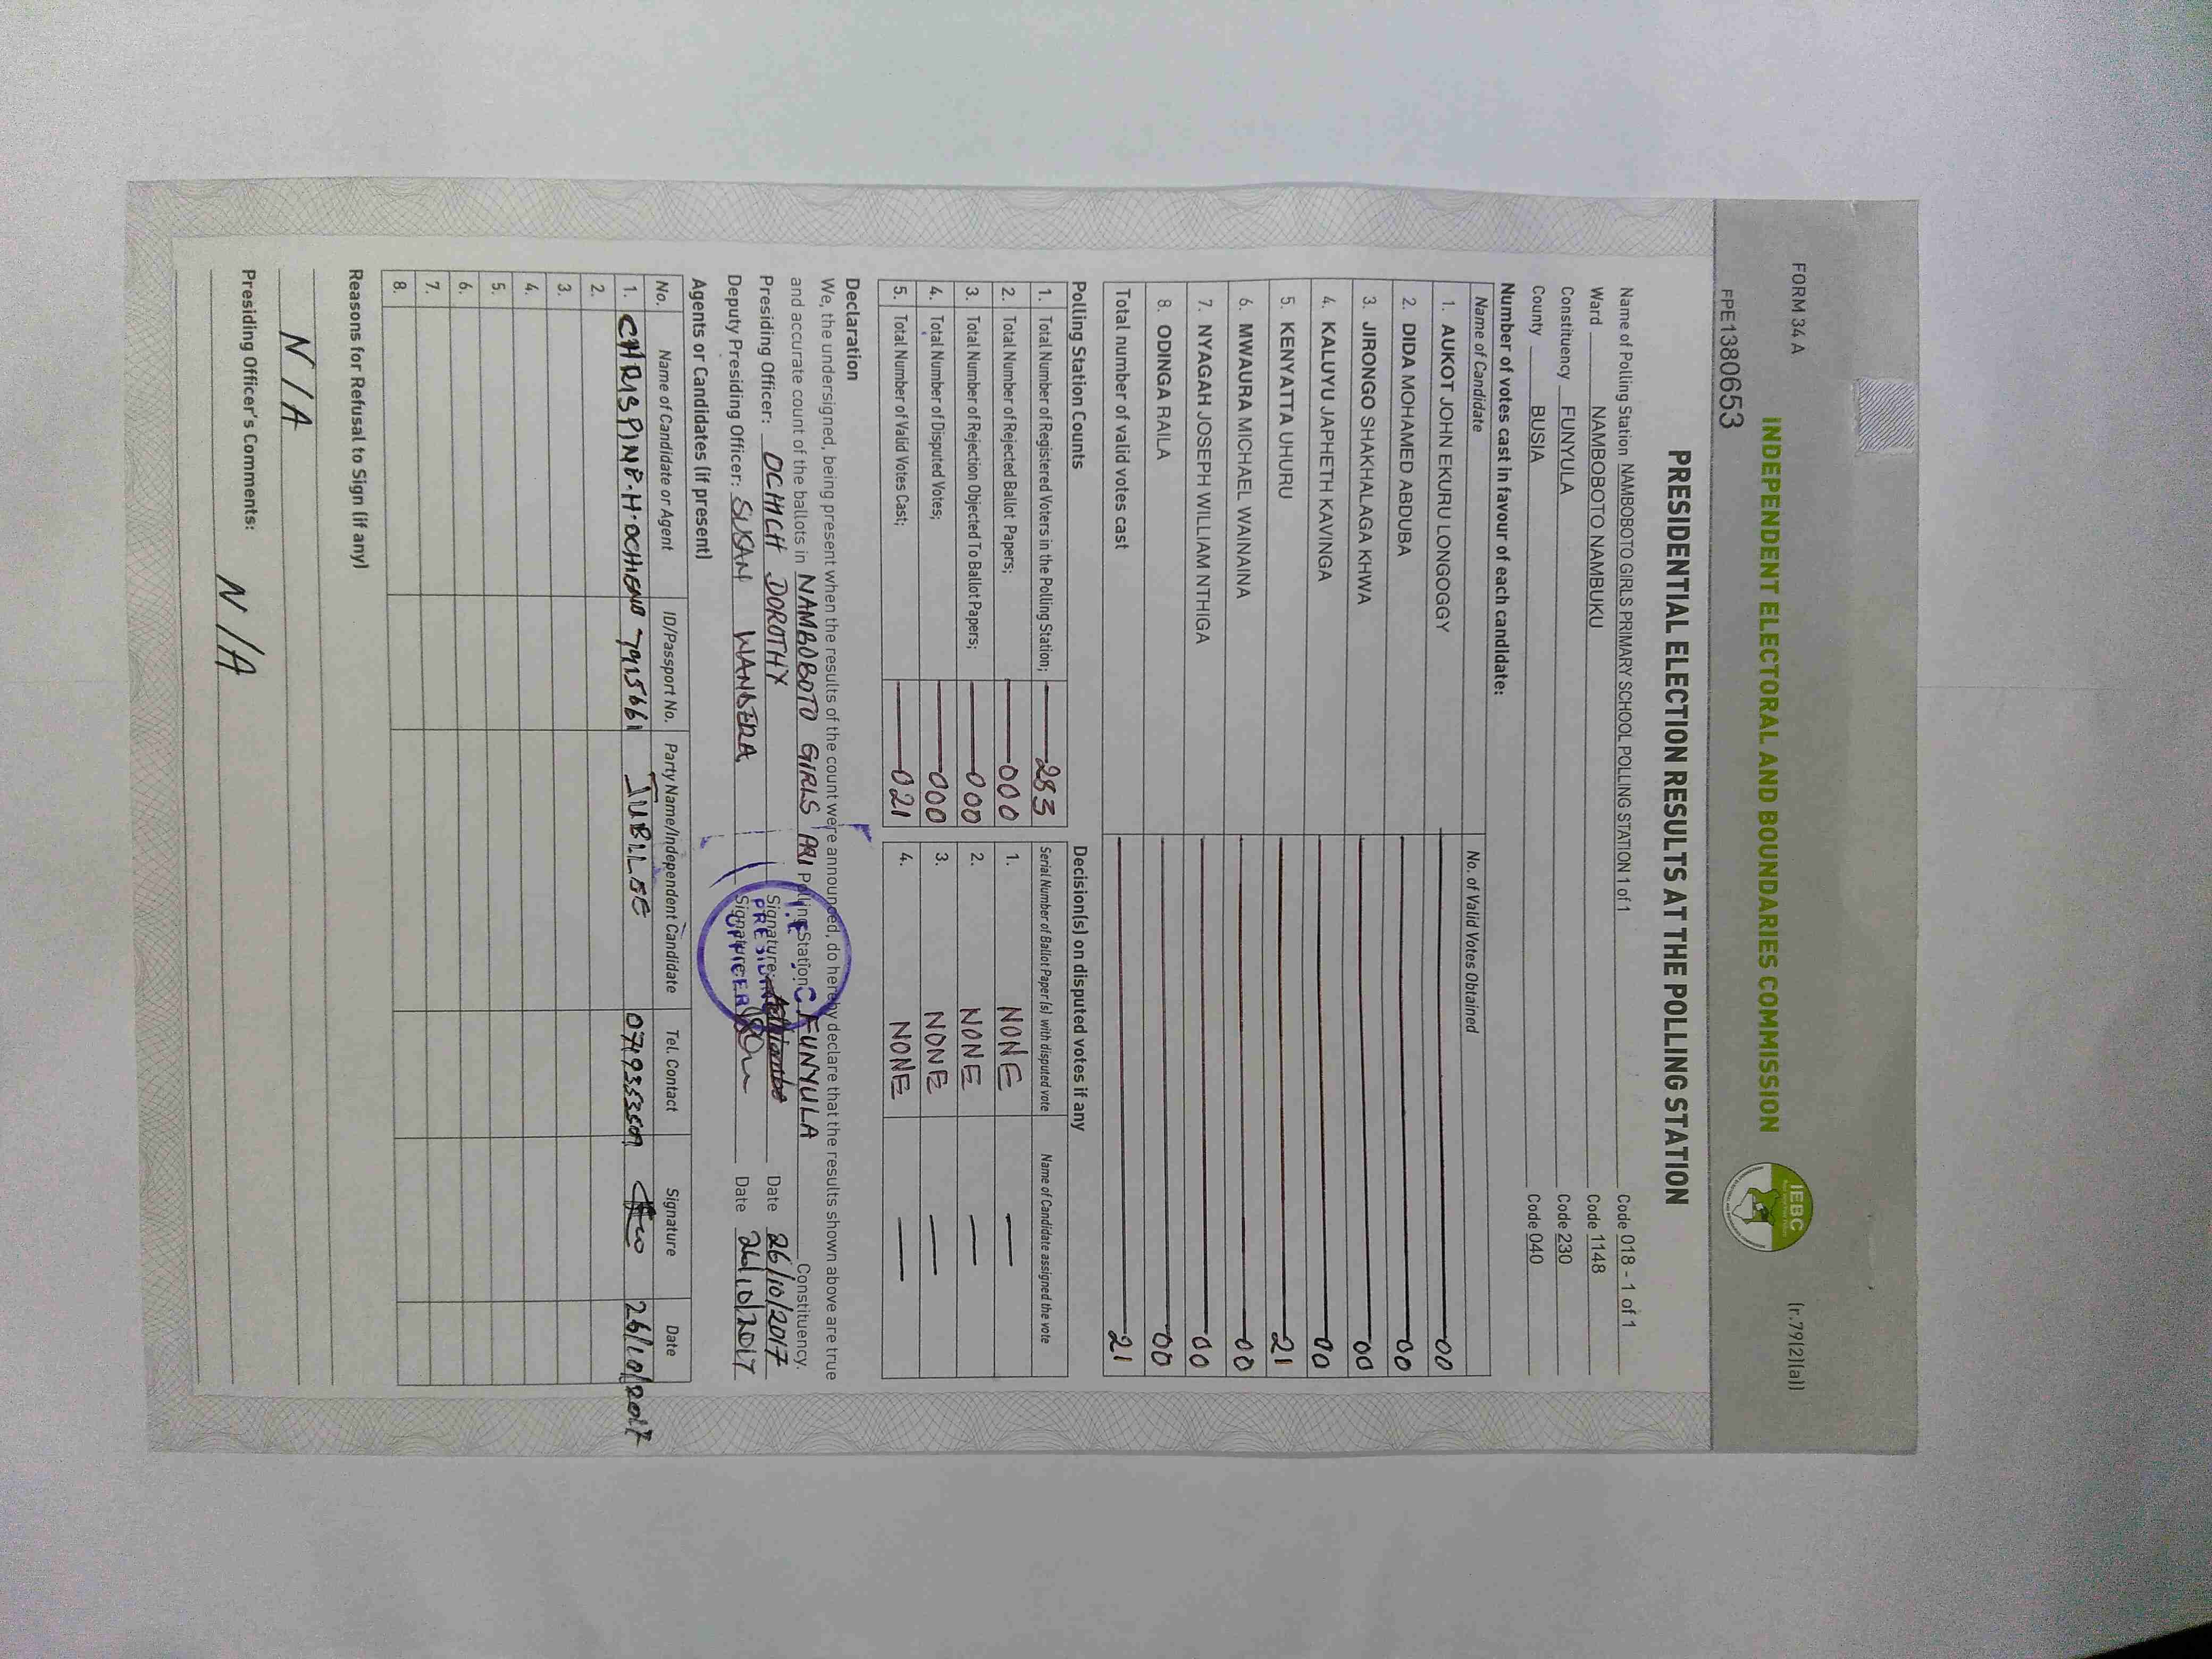 FORM 34 A
(r.79(2)(a))
INDEPENDENT ELECTORAL AND BOUNDARIES COMMISSION
IEBC
FPE1380653
PRESIDENTIAL ELECTION RESULTS AT THE POLLING STATION
Name of Polling Station NAMBOBOTO GIRLS PRIMARY SCHOOL POLLING STATION 1 of 1 Code 018 - 1 of 1
Ward NAMBOBOTO NAMBUKU Code 1148
Constituency FUNYULA Code 230
County BUSIA Code 040
Number of votes cast in favour of each candidate:
Name of Candidate No. of Valid Votes Obtained
1. AUKOT JOHN EKURU LONGOGGY 00
2. DIDA MOHAMED ABDUBA 00
3. JIRONGO SHAKHALAGA KHWA 00
4. KALUYU JAPHETH KAVINGA 00
5. KENYATTA UHURU 21
6. MWAURA MICHAEL WAINAINA 00
7. NYAGAH JOSEPH WILLIAM NTHIGA 00
8. ODINGA RAILA 00
Total number of valid votes cast 21
Polling Station Counts Decision(s) on disputed votes if any
Serial Number of Ballot Paper(s) with disputed vote Name of Candidate assigned the vote
1. Total Number of Registered Voters in the Polling Station; 283
2. Total Number of Rejected Ballot Papers; 000 1. NONE —
3. Total Number of Rejection Objected To Ballot Papers; 000 2. NONE —
4. Total Number of Disputed Votes; 000 3. NONE —
5. Total Number of Valid Votes Cast; 021 4. NONE —
Declaration
We, the undersigned, being present when the results of the count were announced, do hereby declare that the results shown above are true
and accurate count of the ballots in NAMBOBOTO GIRLS PRI Polling Station FUNYULA Constituency.
Presiding Officer: DOROTHY Signature: Date 26/10/2017
Deputy Presiding Officer: SUSAN WANDERA Signature: Date 26/10/2017
PRESIDING
OFFICER
Agents or Candidates (if present)
No. Name of Candidate or Agent ID/Passport No. Party Name/Independent Candidate Tel. Contact Signature Date
1. CHRISPINE.H.OCHIENG 7915661 JUBILEE 26/10/2017
2.
3.
4.
5.
6.
7.
8.
Reasons for Refusal to Sign (if any)
N/A
Presiding Officer's Comments:
N/A